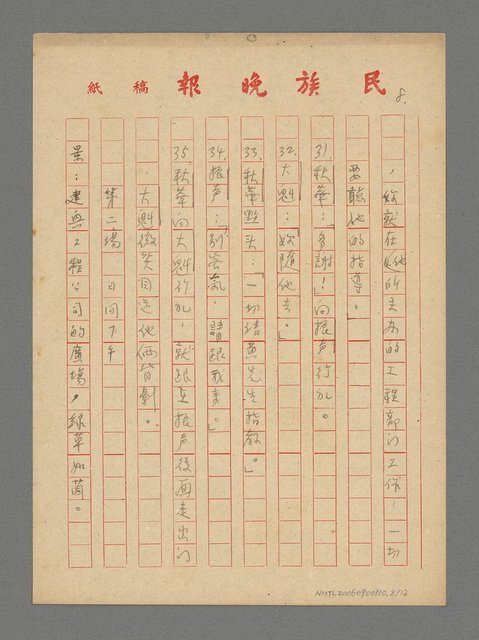 民族晚報 稿紙
8.
，妳就在他所主办的工程部门工作，一切
要聽他的指導。」
31.秋華：「多謝！」向振声行礼。
32.大魁：「妳隨他去。」
33.秋華點头：「一切请黄先生指教。」
34.振声：「别客氣，請跟我來。」
35.秋華向大魁行礼，就跟在振声後面走出门
，大魁微笑目送他俩背影。
第二場 日间下午
景：建興工程公司的廣場，绿草如茵。
NMTL20060900110, 8/12